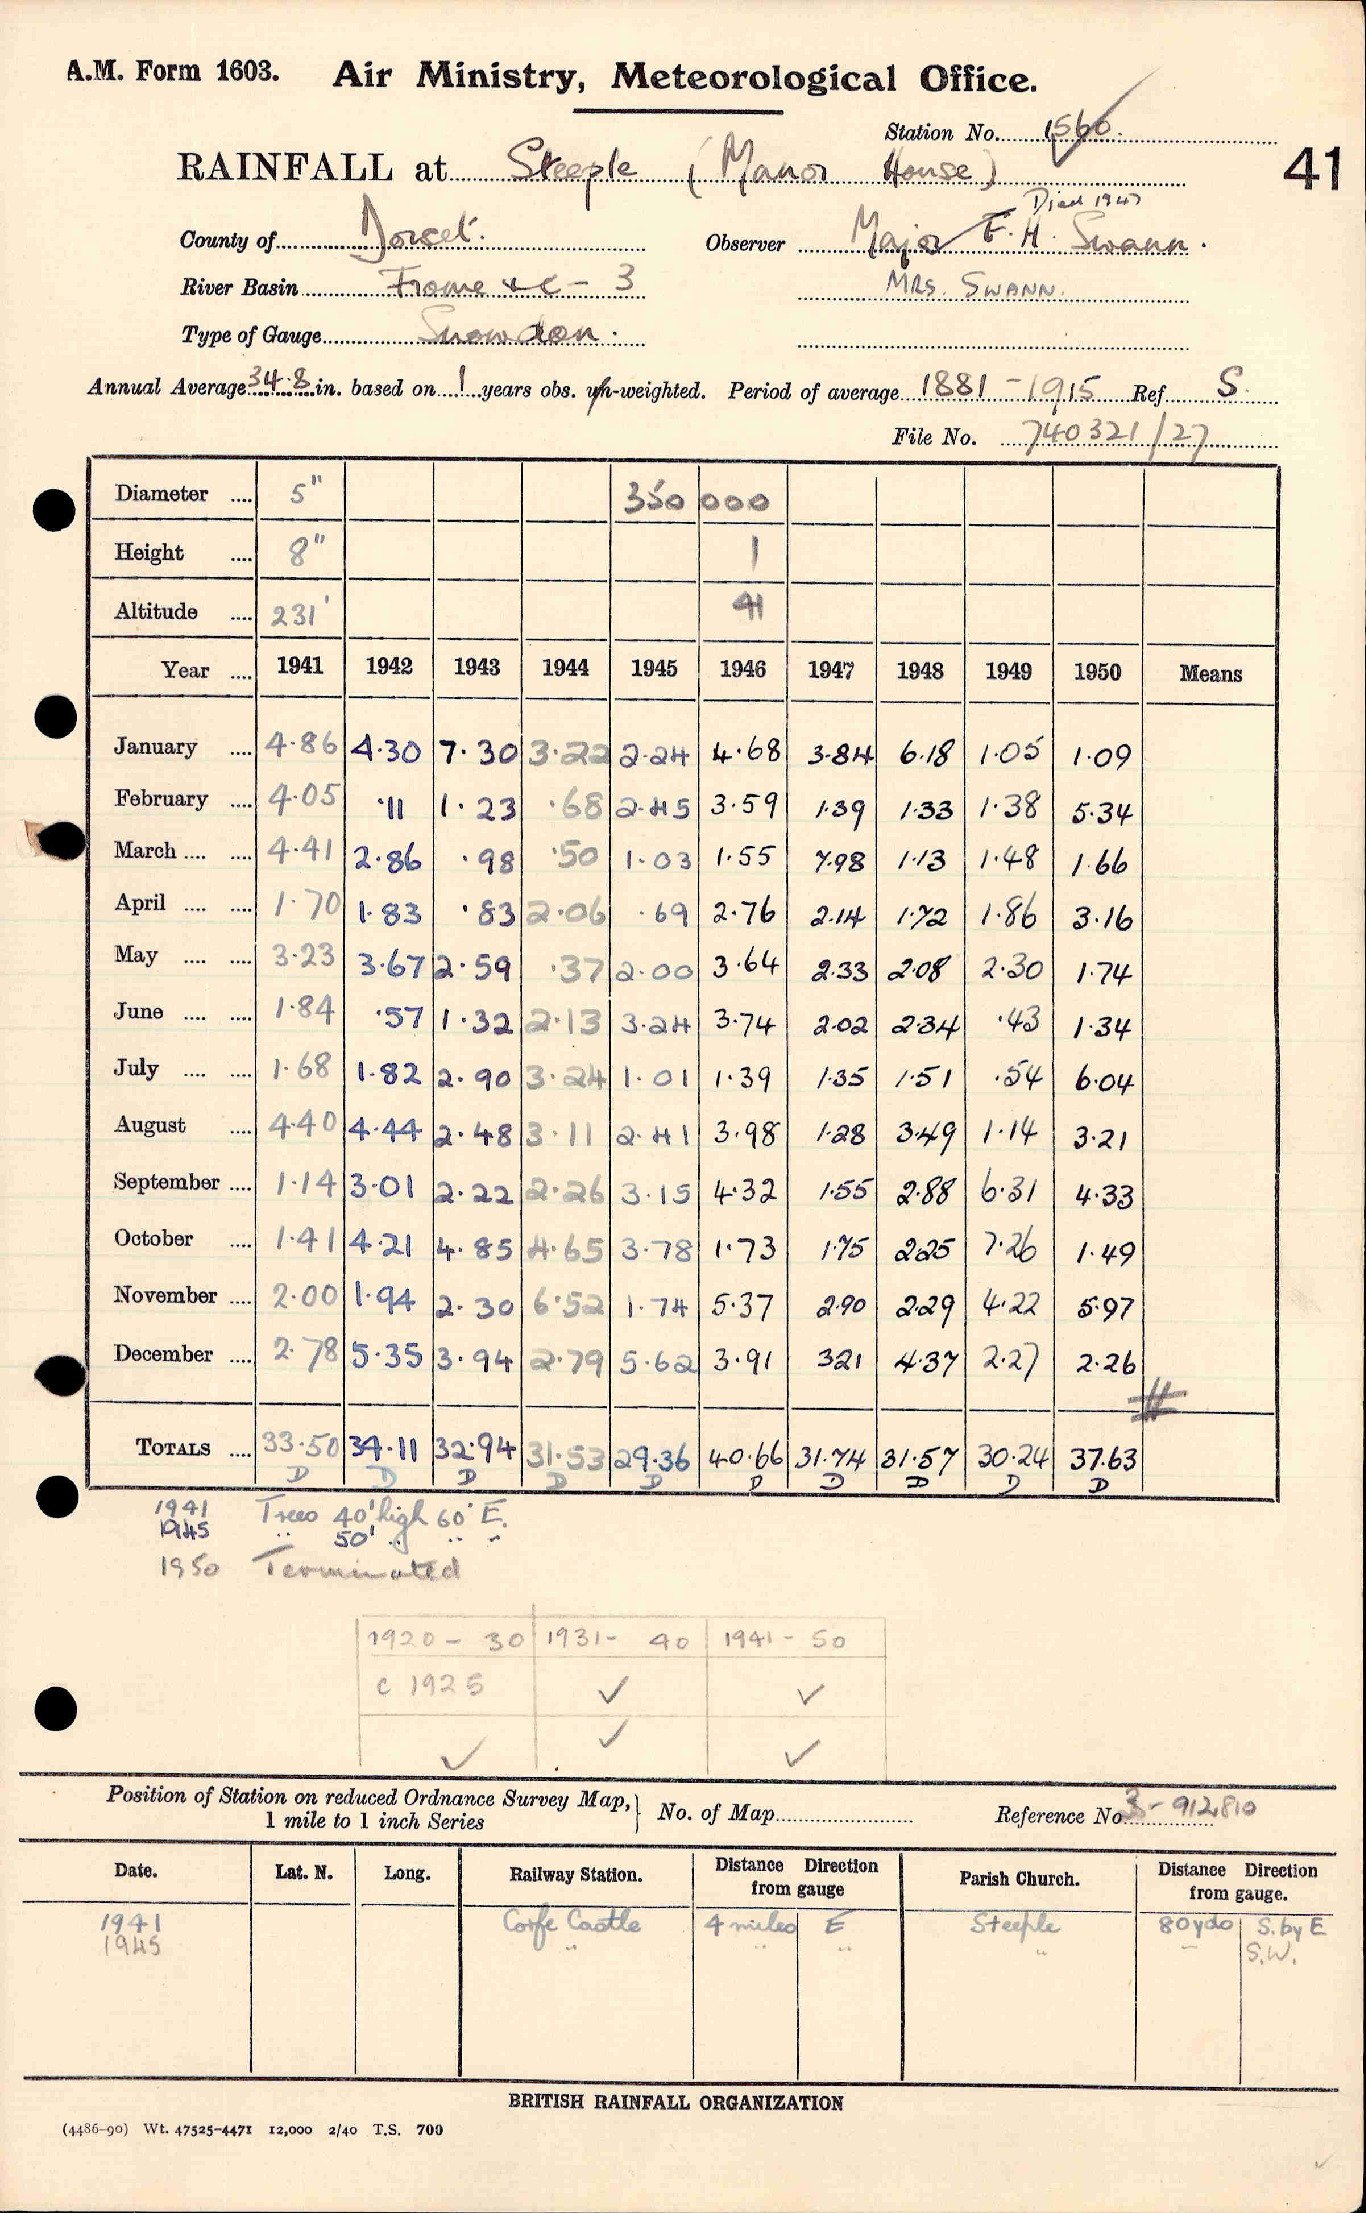 A.M. Form 1603. Air Ministry, Meteorological Office.
Station No. 1560.
RAINFALL at Steeple (Manor House)
41
Died 1947
County of Dorset. Observer Major E. H. Swann.
River Basin Frome &c - 3 MRS. SWANN.
Type of Gauge Snowdon.
Annual Average 34.8 in. based on 1 years obs. -weighted. Period of average 1881-1915 Ref S.
File No. 740321/27
Diameter .... 5" 350 000
Height .... 8" 1
Altitude .... 231' 41
Year .... 1941 1942 1943 1944 1945 1946 1947 1948 1949 1950 Means
January .... 4.86 4.30 7.30 3.22 2.24 4.68 3.84 6.18 1.05 1.09
February .... 4.05 .11 1.23 .68 2.45 3.59 1.39 1.33 1.38 5.34
March .... .... 4.41 2.86 .98 .50 1.03 1.55 7.98 1.13 1.48 1.66
April .... .... 1.70 1.83 .83 2.06 .69 2.76 2.14 1.72 1.86 3.16
May .... .... 3.23 3.67 2.59 .37 2.00 3.64 2.33 2.08 2.30 1.74
June .... .... 1.84 .57 1.32 2.13 3.24 3.74 2.02 2.34 .43 1.34
July .... .... 1.68 1.82 2.90 3.24 1.01 1.39 1.35 1.51 .54 6.04
August .... 4.40 4.44 2.48 3.11 2.41 3.98 1.28 3.49 1.14 3.21
September .... 1.14 3.01 2.22 2.26 3.15 4.32 1.55 2.88 6.31 4.33
October .... 1.41 4.21 4.85 4.65 3.78 1.73 1.75 2.25 7.26 1.49
November .... 2.00 1.94 2.30 6.52 1.74 5.37 2.90 2.29 4.22 5.97
December .... 2.78 5.35 3.94 2.79 5.62 3.91 321 4.37 2.27 2.26
TOTALS .... 33.50 34.11 32.94 31.53 29.36 40.66 31.74 31.57 30.24 37.63
D D D D D D D D D D
1941 Trees 40' high 60' E.
1945 " 50' " " "
1950 Terminated
1920 - 30 1931 - 40 1941 - 50
c 1925 ✓ ✓
✓ ✓ ✓
Position of Station on reduced Ordnance Survey Map, 1 mile to 1 inch Series } No. of Map Reference No 3-912810
Date. Lat. N. Long. Railway Station. Distance Direction from gauge Parish Church. Distance Direction from gauge.
1941 Corfe Castle 4 miles E Steeple 80 yds S. by E
1945 " " " " " S.W.
BRITISH RAINFALL ORGANIZATION
(4486-90) Wt. 47525-4471 12,000 2/40 T.S. 700